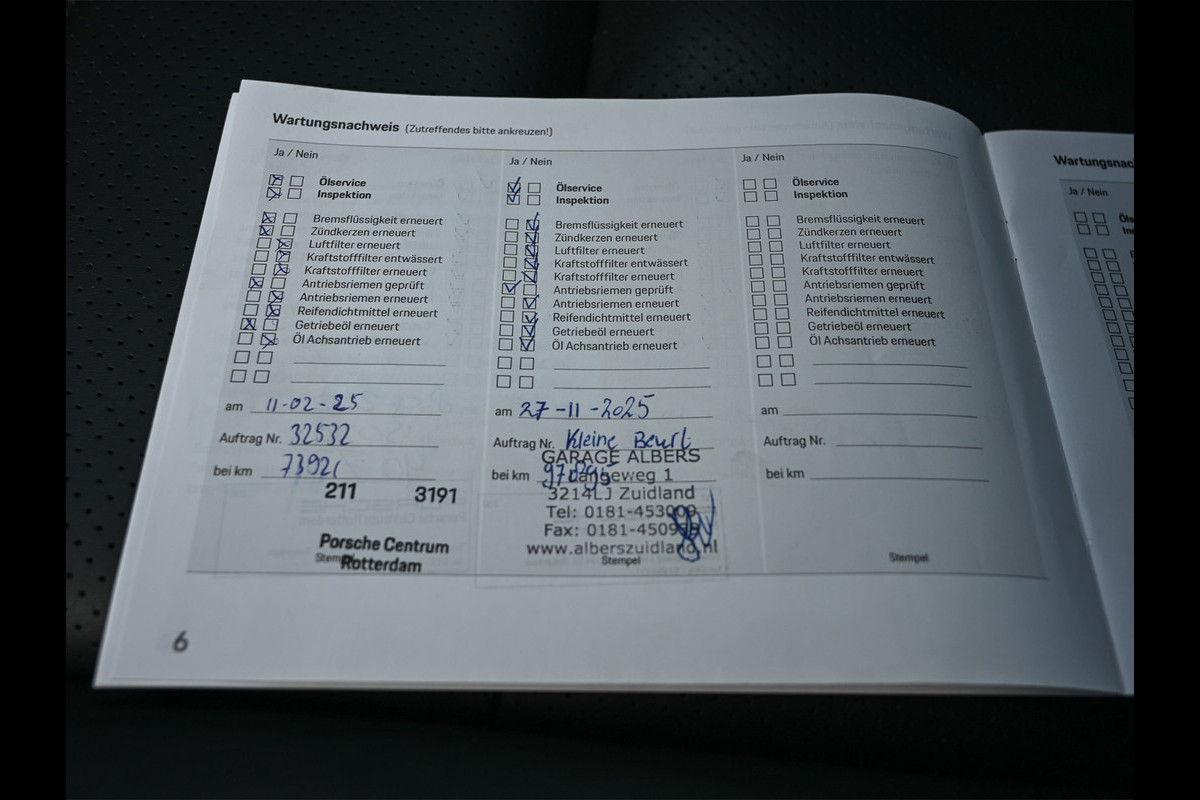 Wartungsnachweis (Zutreffendes bitte ankreuzen!)
Ja / Nein
Ölservice
Inspektion
Bremsflüssigkeit erneuert
Zündkerzen erneuert
Luftfilter erneuert
Kraftstofffilter entwässert
Kraftstofffilter erneuert
Antriebsriemen geprüft
Antriebsriemen erneuert
Reifendichtmittel erneuert
Getriebeöl erneuert
Öl Achsantrieb erneuert
am 11-02-25
Auftrag Nr. 32532
bei km 73921
211 3191
Porsche Centrum
Stempel
Rotterdam
Ja / Nein
Ölservice
Inspektion
Bremsflüssigkeit erneuert
Zündkerzen erneuert
Luftfilter erneuert
Kraftstofffilter entwässert
Kraftstofffilter erneuert
Antriebsriemen geprüft
Antriebsriemen erneuert
Reifendichtmittel erneuert
Getriebeöl erneuert
Öl Achsantrieb erneuert
am 27-11-2025
Auftrag Nr. Kleine Beurt
GARAGE ALBERS
bei km
1
3214LJ Zuidland
Tel: 0181-453009
Fax: 0181-4509
www.alberszuidland.nl
Stempel
Ja / Nein
Ölservice
Inspektion
Bremsflüssigkeit erneuert
Zündkerzen erneuert
Luftfilter erneuert
Kraftstofffilter entwässert
Kraftstofffilter erneuert
Antriebsriemen geprüft
Antriebsriemen erneuert
Reifendichtmittel erneuert
Getriebeöl erneuert
Öl Achsantrieb erneuert
am
Auftrag Nr.
bei km
Stempel
6
Wartungsnac
Ja / Nein
Öls
In